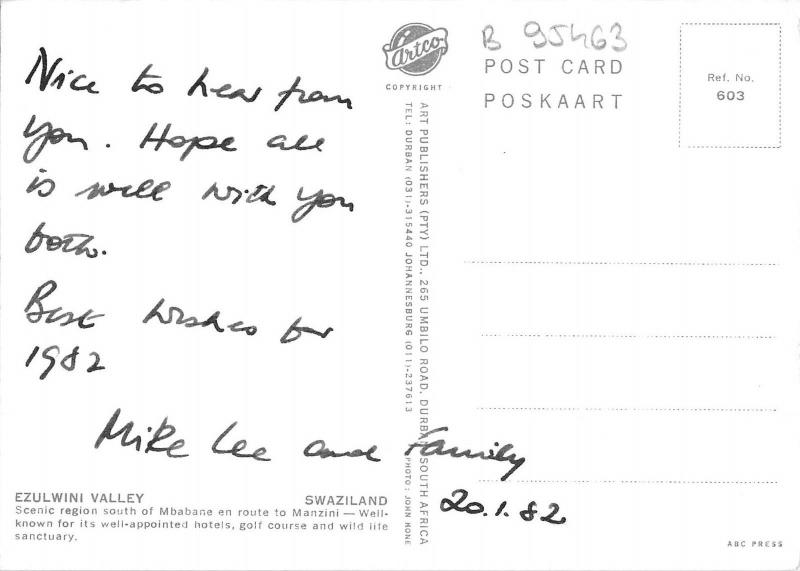 Nice to hear from
you. Hope all
is well with you
both.
Best wishes for
1982
Mike Lee and Family
20.1.82
EZULWINI VALLEY SWAZILAND
Scenic region south of Mbabane en route to Manzini — Well-
known for its well-appointed hotels, golf course and wild life
sanctuary.
Artco
COPYRIGHT
ART PUBLISHERS (PTY) LTD., 265 UMBILO ROAD, DURBAN SOUTH AFRICA
TEL: DURBAN (031)-315440 JOHANNESBURG (011)-237613 PHOTO: JOHN HONE
B 95463
POST CARD
POSKAART
Ref. No.
603
ABC PRESS